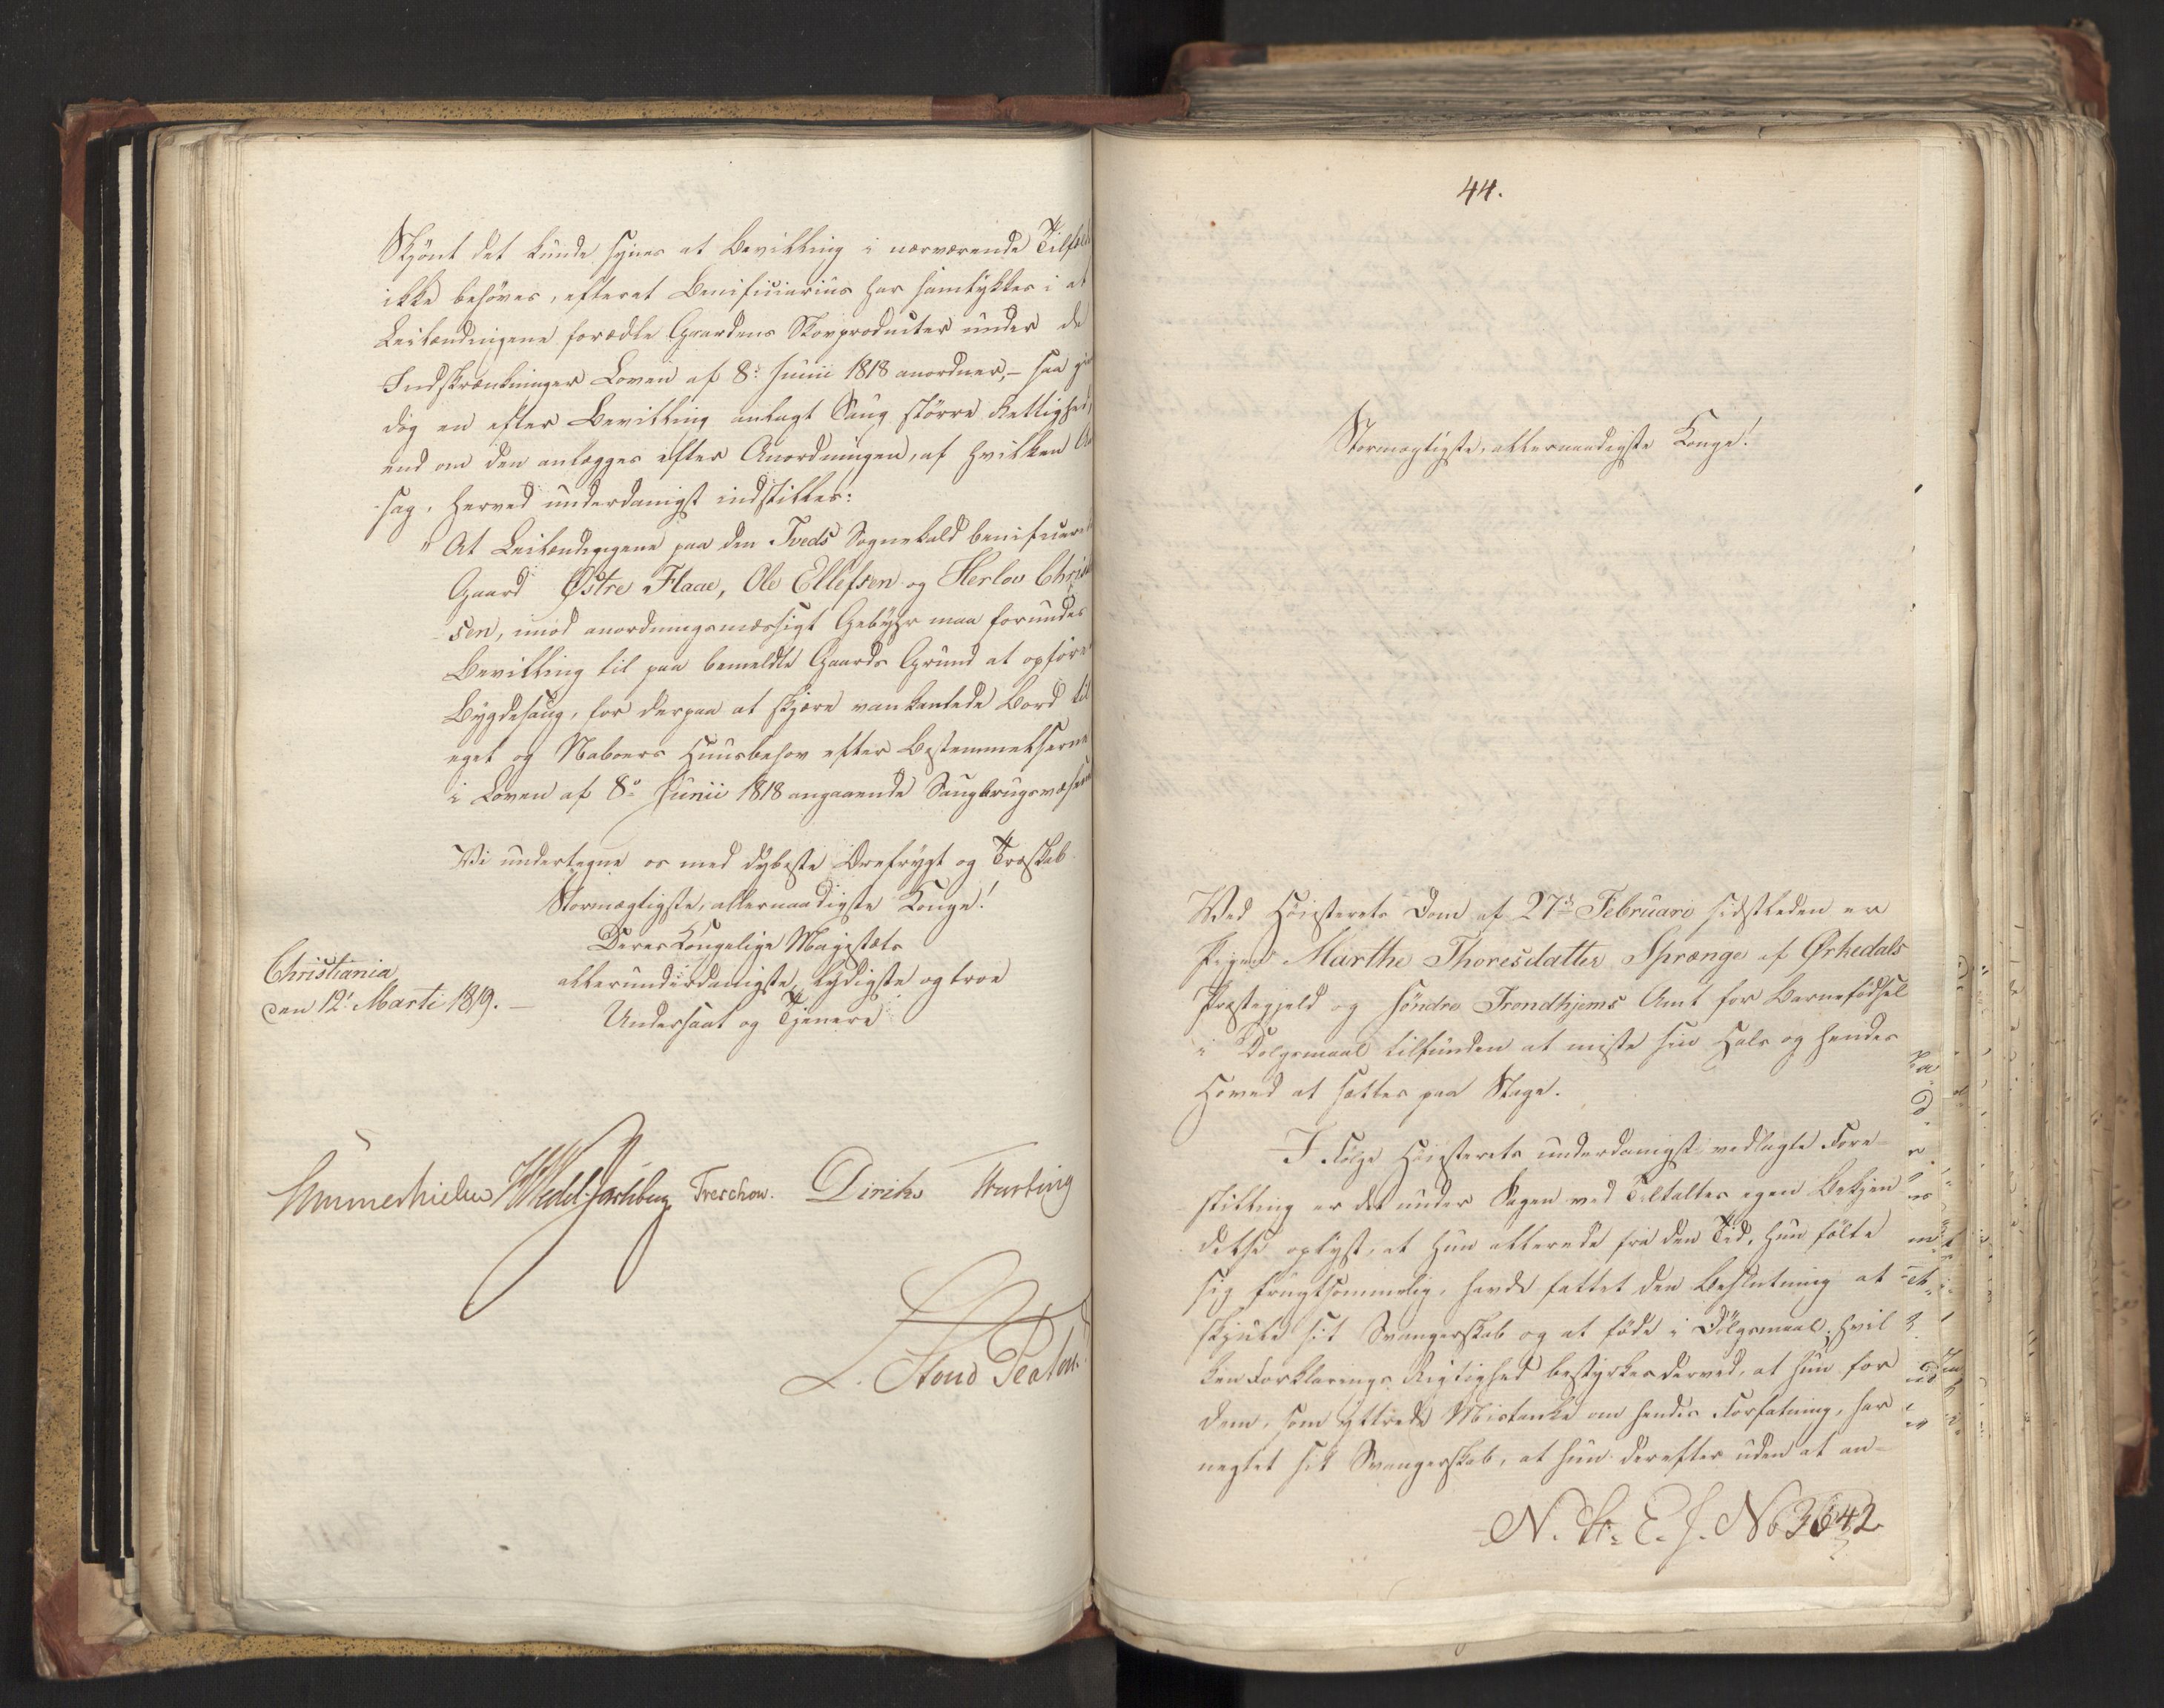 Skjönt det kunde synes at Bevilling i nærværende Tilfæl
ikke behöves, efterat Benificiarius har samtykket i at
Leilændingene forædle Gaardens Skovproducter under de
Indskrænkninger Loven af 8de Junii 1818 anordner, – saa gi
dog en efter Bevilling anlagt Saug större Rettighed,
end om den anlægges efter Anordningen, af hvilken Aar
sag, herved underdanigst indstilles:
"At Leilændingene paa den Tveds Sognekald benificerede
Gaard Østre Flaae, Ole Ellefsen og Herlov Christ
sen, imod anordningsmæssigt Gebyhr maa forundes
Bevilling til paa bemeldte Gaards Grund at opföre
Bygdesaug, for derpaa at skjære vankantede Bord til
eget og Naboers Huusbehov efter Bestemmelserne
i Loven af 8de Junii 1818 angaaende Saugbrugsvæsen
Vi undertegne os med dybeste Ærefrygt og Troskab
Stormægtigste, allernaadigste Konge!
Deres Kongelige Majestæts
Christiania
den 12te Marti 1819. –
allerunderdanigste, lydigste og troe
Undersaat og Tjenere
Sommerhielm HWedel-Jarlsberg Treschow. Diriks
L. Stoud Platou
44.
Stormægtigste, allernaadigste Konge!
Ved Höiesterets Dom af 27de Februari sidstleden er
Pigen Marthe Thoresdatter Sprænge af Ørkedals
Præstegjeld og söndre Trondhjems Amt for Barnefödsel
i Dölgsmaal tilfunden at miste sin Hals og hendes
Hoved at sættes paa Stage.
I Fölge Höiesterets underdanigst vedlagte Fore-
stilling er det under Sagen ved Tiltaltes egen Bekjen
delse oplyst, at hun allerede fra den Tid, hun fölte
sig frugtsommelig, havde fattet den Beslutning at
skjule sit Svangerskab og at föde i Dölgsmaal, hvil
ken Forklarings Rigtighed bestyrkes derved, at hun for
dem, som yttrede Mistanke om hendes Forfatning, har
negtet sit Svangerskab, at hun derefter uden at an-
N. St. E. J. No 3642